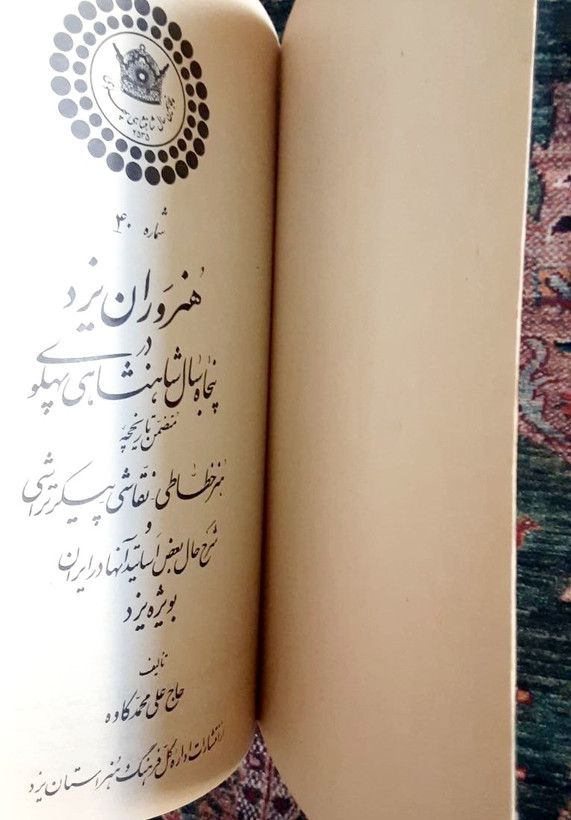 پنجاهمین سال شاهنشاهی پهلوی
۲۵۳۵
شماره ۴۰
هنروران یزد
در
پنجاه سال شاهنشاهی پهلوی
متضمن تاریخچه
هنر خطاطی، نقاشی، پیکرتراشی
و
شرح حال بعض اساتید آنها در ایران
بویژه یزد
تالیف
حاج علی محمد کاوه
از انتشارات اداره کل فرهنگ و هنر استان یزد